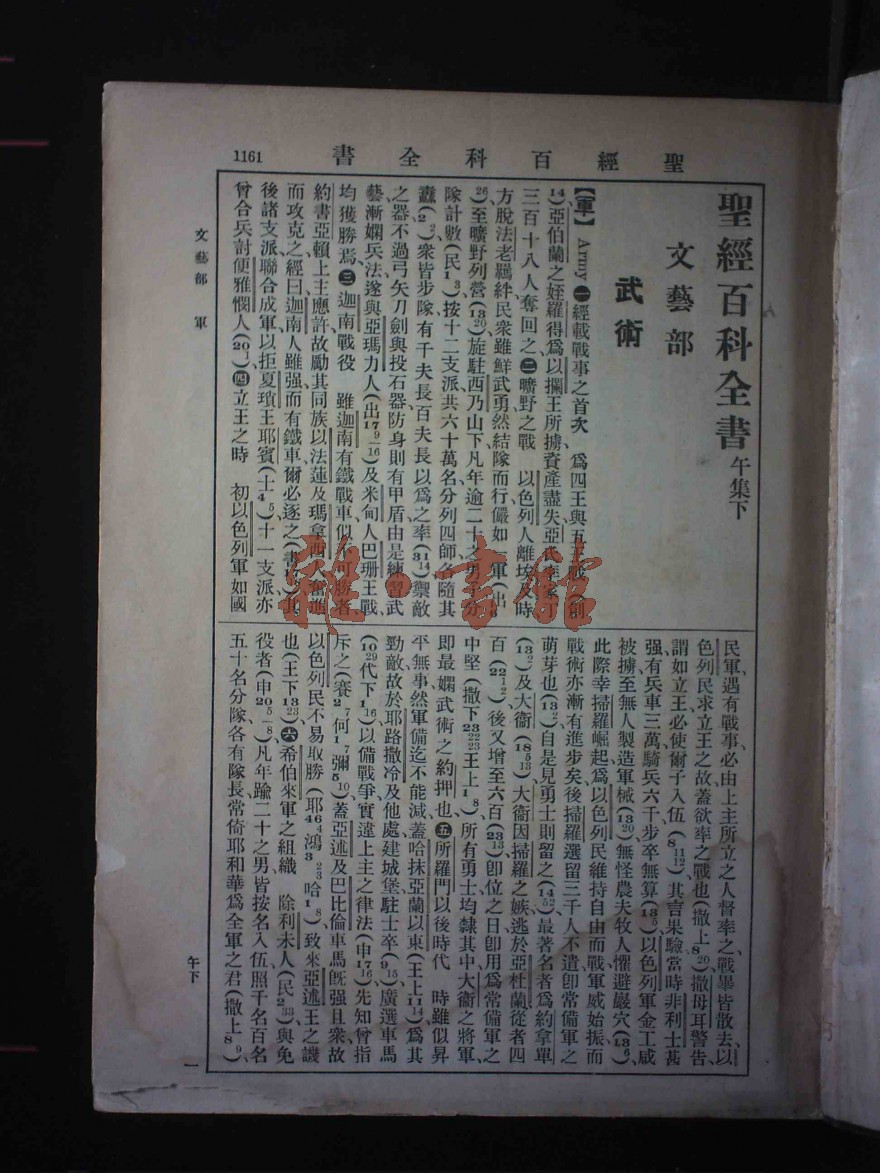 聖經百科全書
1161
聖經百科全書 午集下
文藝部
武術
【軍】 Army ㊀經載戰事之首次 爲四王與五王戰(創
14)亞伯蘭之姪羅得爲以攔王所擄資產盡失亞氏率家丁
三百十八人奪回之㊁曠野之戰 以色列人離埃及時
方脫法老羈絆民衆雖鮮武勇然結隊而行儼如 軍(出
26)至曠野列營(13 20)旋駐西乃山下凡年逾二十之男子分
隊計數(民1 3)按十二支派共六十萬名分列四師各隨其
纛(2 2)衆皆步隊有千夫長百夫長以爲之率(31 14)禦敵
之器不過弓矢刀劍與投石器防身則有甲盾由是練習武
藝漸嫻兵法遂與亞瑪力人(出17 9-16)及米甸人巴珊王戰
均獲勝焉㊂迦南戰役 雖迦南有鐵戰車似不可勝者
約書亞賴上主應許故勵其同族以法蓮及瑪拿西人奮進
而攻克之經曰迦南人雖强而有鐵車爾必逐之(書17)其
後諸支派聯合成軍以拒夏瑣王耶賓(士4 5)十一支派亦
曾合兵討便雅憫人(20 1)㊃立王之時 初以色列軍如國
民軍遇有戰事必由上主所立之人督率之戰畢皆散去以
色列民求立王之故蓋欲率之戰也(撒上8 20)撒母耳警告
謂如立王必使爾子入伍(8 11 12)其言果驗當時非利士甚
强有兵車三萬騎兵六千步卒無算(13 5)以色列軍金工咸
被擄至無人製造軍械(13 20)無怪農夫牧人懼避巖穴(13 6)
此際幸掃羅崛起爲以色列民維持自由而戰軍威始振而
戰術亦漸有進步矣後掃羅選留三千人不遣卽常備軍之
萌芽也(13 2)自是見勇士則留之(14 52)最著名者爲約拿單
(13 2)及大衞(18 5 13)大衞因掃羅之嫉逃於亞杜蘭從者四
百(22 1 2)後又增至六百(23 13)卽位之日卽用爲常備軍之
中堅(撒下23 22 23王上1 8)所有勇士均隸其中大衞之將軍
卽最嫻武術之約押也㊄所羅門以後時代 時雖似昇
平無事然軍備迄不能減蓋哈抹亞蘭以東(王上11 14)爲其
勁敵故於耶路撒冷及他處建城堡駐士卒(9 15)廣選車馬
(10 29代下1 16)以備戰爭實違上主之律法(申17 16)先知曾指
斥之(賽2 7何1 7彌5 10)蓋亞述及巴比倫車馬旣强且衆故
以色列民不易取勝(耶46 4鴻3 2 3哈1 8)致來亞述王之譏
也(王下18 23)㊅希伯來軍之組織 除利未人(民2 33)與免
役者(申20 5-8)凡年踰二十之男皆按名入伍照千名百名
五十名分隊各有隊長常倚耶和華爲全軍之君(撒上8 9)
文藝部 軍
午下
一
雜·書館